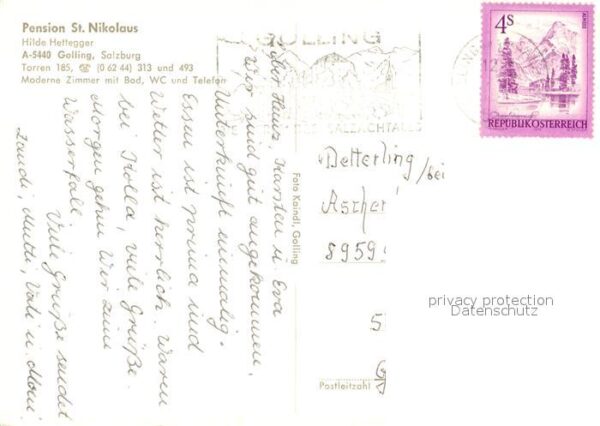 Pension St. Nikolaus
Hilde Hettegger
A-5440 Golling, Salzburg
Torren 185, ☎ (0 62 44) 313 und 493
Moderne Zimmer mit Bad, WC und Telefon
GOLLING
SALZACHTALES
4S
ALMSEE
REPUBLIK ÖSTERREICH
Heinz, Karsten u. Eva
Wir sind gut angekommen,
Unterkunft einmalig.
Essen ist prima und
Wetter ist herrlich. Waren
bei Holla, viele Grüße.
Morgen gehen wir zum
Wasserfall.
Viele Grüße sendet
Mutti, Vati u.
Foto Kaindl, Golling
Detterling/bei
Ascher
8959
5
Postleitzahl
privacy protection
Datenschutz